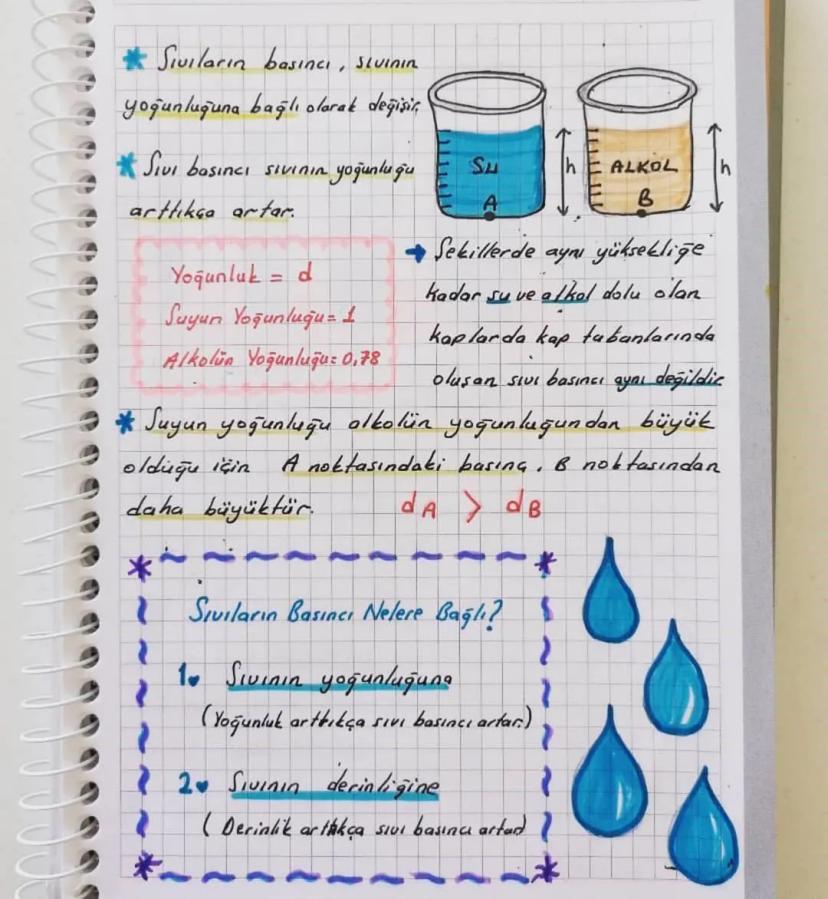 * Sıvıların basıncı, sıvının
yoğunluğuna bağlı olarak değişir.
* Sıvı basıncı sıvının yoğunluğu
arttıkça artar.
SU
A
h
ALKOL
B
h
Yoğunluk = d
Suyun Yoğunluğu = 1
Alkolün Yoğunluğu = 0,78
→ Şekillerde aynı yüksekliğe
kadar su ve alkol dolu olan
kaplarda kap tabanlarında
oluşan sıvı basıncı aynı değildir.
* Suyun yoğunluğu alkolün yoğunluğundan büyük
olduğu için A noktasındaki basınç, B noktasından
daha büyüktür. dA > dB
Sıvıların Basıncı Nelere Bağlı?
1. Sıvının yoğunluğuna
(Yoğunluk arttıkça sıvı basıncı artar.)
2. Sıvının derinliğine
(Derinlik arttıkça sıvı basıncı artar)